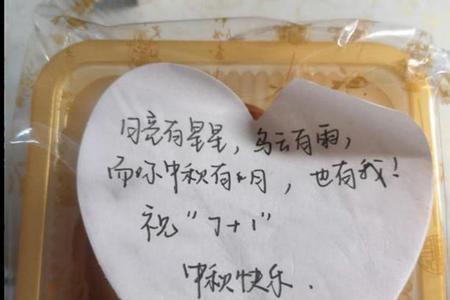 月亮有星星，乌云有雨，
而你中秋有月，也有我！
祝“7+1”
中秋快乐.